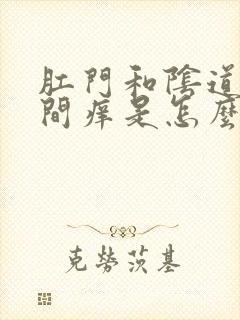 肛門和陰道
間癢是怎麼
克勞茨基